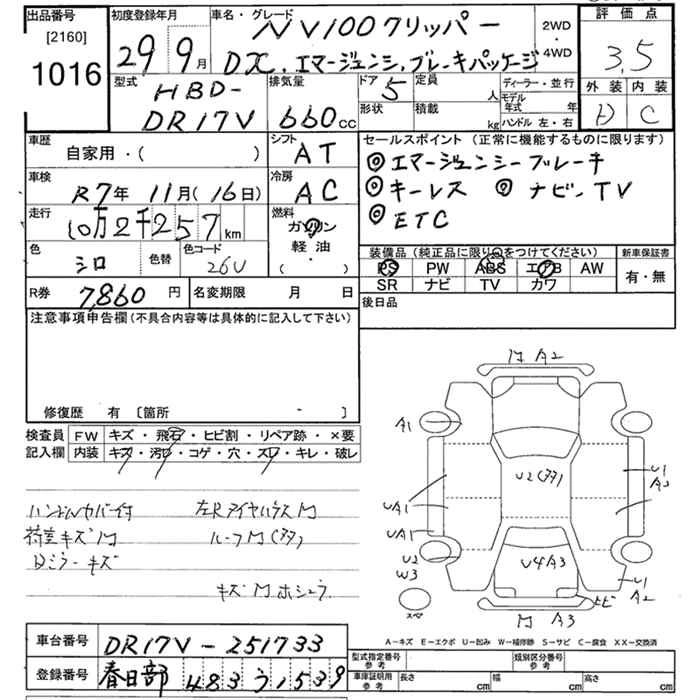 出品番号
[2160]
1016
初度登録年月
29 9月
車名・グレード
NV100クリッパー
DX.エマージェンシィブレーキパッケージ
2WD
・
4WD
評価点
3.5
外装 内装
D C
型式
HBD-
DR17V
排気量
660cc
ドア
5
形状
定員
人
積載
kg
ディーラー・並行
モデル
年式 年
ハンドル 左・右
車歴
自家用・( )
シフト
AT
車検
R7年 11月(16日)
冷房
AC
走行
10万2千257km
燃料
ガソリン
軽油
( ・ )
色
シロ
色替
色コード
26U
セールスポイント(正常に機能するものに限ります)
◎エマージェンシーブレーキ
◎キーレス ◎ナビ、TV
◎ETC
装備品(純正品に限り○をつけてください)
PS PW ABS エアB AW
SR ナビ TV カワ
新車保証書
有・無
R券 7,860円
名変期限 月 日
後日品
注意事項申告欄(不具合内容等は具体的に記入して下さい)
修復歴 有 〔箇所 〕
検査員
記入欄
FW キズ・飛石・ヒビ割・リペア跡・×要
内装 キズ・汚レ・コゲ・穴・スレ・キレ・破レ
ハンドルカバー付 左Rタイヤハウス M
荷室キズM ルーフM(タタ)
Dミラーキズ
キズM ホシュウ
M A2
A1
U2(タタ)
U1
A3
UA1
UA1
U2
W3
U4A3
U1
A2
ヒビ
M A3
スペ
A-キズ E-エクボ U-凹み W-補修跡 S-サビ C-腐食 XX-交換済
車台番号 DR17V-251733
登録番号 春日部 483 う1539
型式指定番号
参考
類別区分番号
参考
車庫証明用
参考
長さ cm 幅 cm 高さ cm